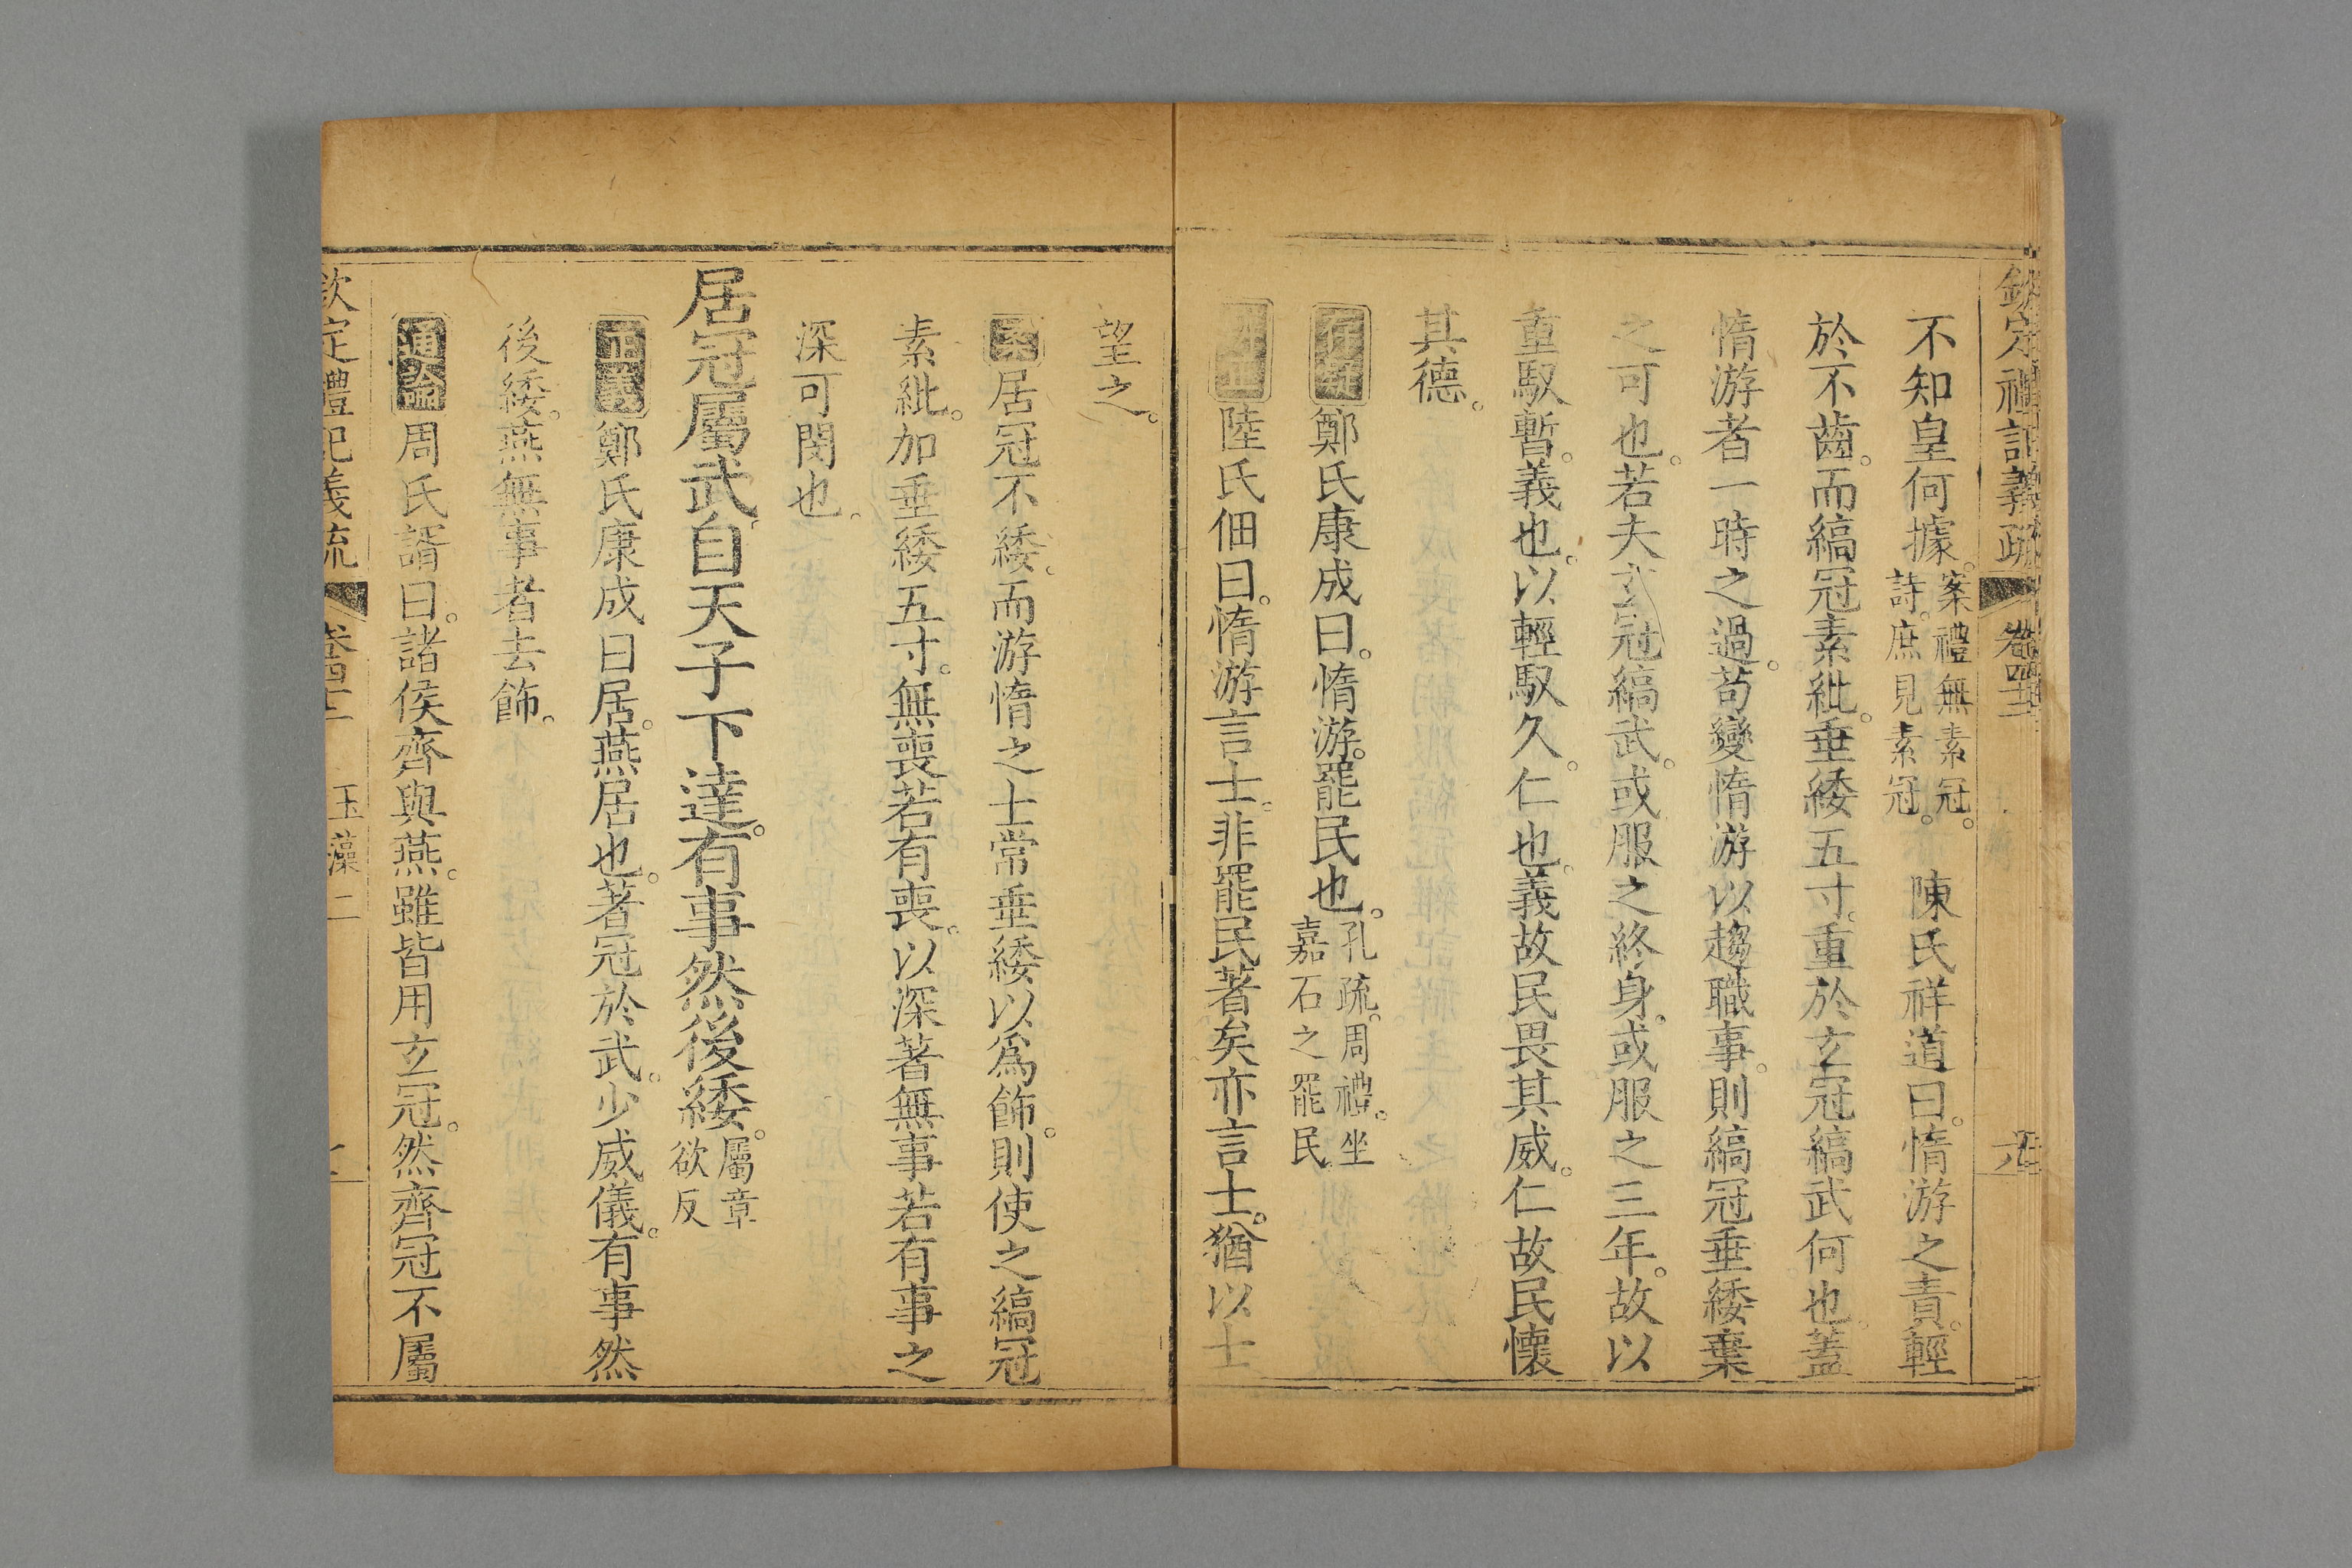 欽定禮記義疏 卷四十二
不知皇何據。案禮無素冠。詩。庶見素冠。 陳氏祥道曰。惰游之責。輕
於不齒。而縞冠素紕。垂緌五寸。重於玄冠縞武何也。蓋
惰游者一時之過。苟變惰游以趨職事。則縞冠垂緌棄
之可也。若夫玄冠縞武。或服之終身。或服之三年。故以
重馭暫。義也。以輕馭久。仁也。義故民畏其威。仁故民懷
其德。
存疑鄭氏康成曰。惰游。罷民也。孔疏。周禮。坐嘉石之罷民
辨正陸氏佃曰。惰游言士。非罷民著矣亦言士。猶以士
望之。
案居冠不緌。而游惰之士常垂緌以爲飾。則使之縞冠
素紕。加垂緌五寸。無喪若有喪。以深著無事若有事之
深可閔也。
居冠屬武。自天子下達。有事然後緌。屬章欲反
正義鄭氏康成曰居。燕居也。著冠於武。少威儀。有事然
後緌。燕無事者去飾。
通論周氏諝曰。諸侯齊與燕。雖皆用玄冠。然齊冠不屬
欽定禮記義疏 卷四十二 玉藻二